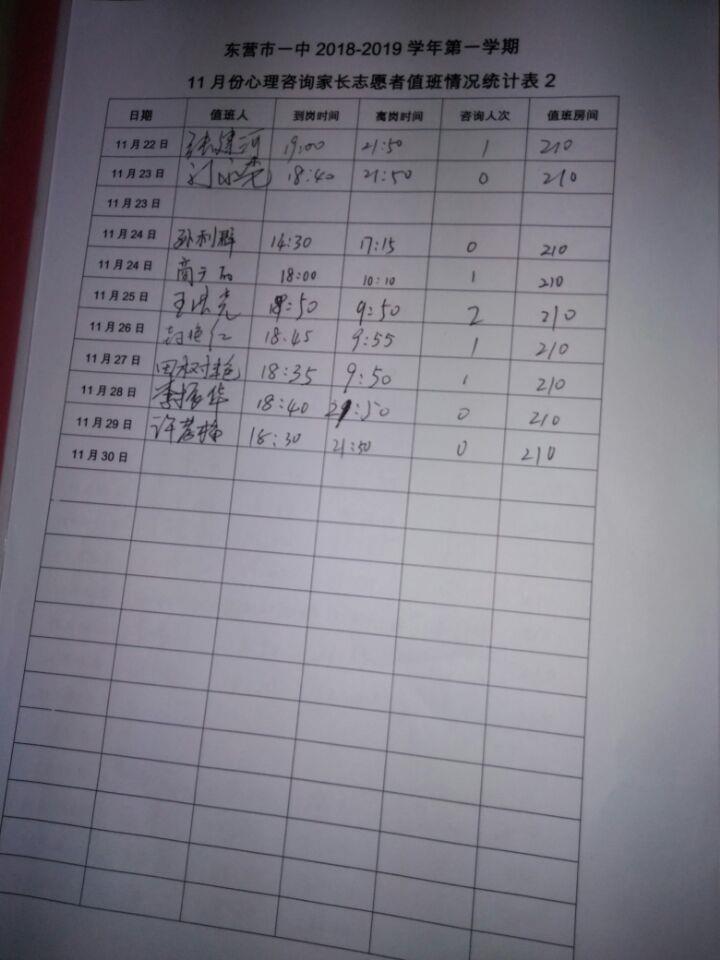 东营市一中 2018-2019 学年第一学期
11 月份心理咨询家长志愿者值班情况统计表 2
日期 值班人 到岗时间 离岗时间 咨询人次 值班房间
11 月 22 日 张建河 19:00 21:50 1 210
11 月 23 日 18:40 21:50 0 210
11 月 23 日
11 月 24 日 孙利群 14:30 17:15 0 210
11 月 24 日 18:00 10:10 1 210
11 月 25 日 :50 9:50 2 210
11 月 26 日 18:45 9:55 1 210
11 月 27 日 田树艳 18:35 9:50 1 210
11 月 28 日 李振华 18:40 21:50 0 210
11 月 29 日 18:30 21:50 0 210
11 月 30 日